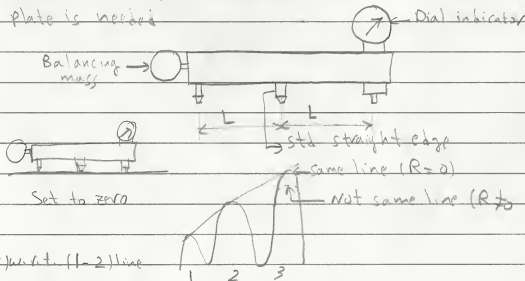 plate is needed
Dial indicator
Balancing
mass
L
L
std straight edge
same line (R=0)
Not same line (R≠0
Set to zero
)w.r.t. (1-2) line
1
2
3